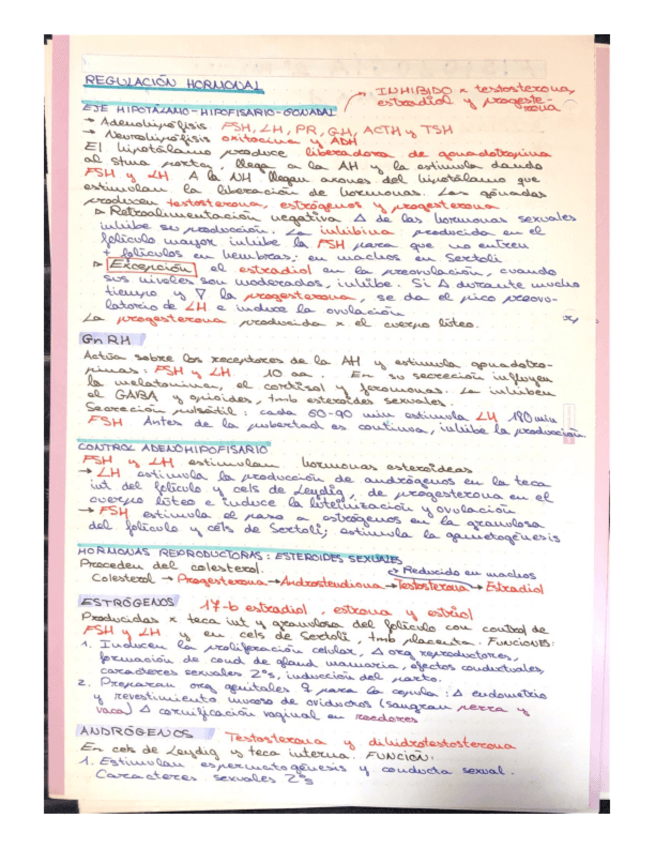 REGULACIÓN HORMONAL
INHIBIDO x testosterona,
estradiol y progeste-
rona
EJE HIPOTÁLAMO-HIPOFISARIO-GONADAL
→ Adenohipófisis FSH, LH, PR, GH, ACTH y TSH
→ Neurohipófisis oxitocina y ADH
El hipotálamo produce liberadora de gonadotropina
al stma porta, llega a la AH y la estimula dando
FSH y LH. A la NH llegan axones del hipotálamo que
estimulan la liberación de hormonas. Las gónadas
producen testosterona, estrógenos y progesterona
▹ Retroalimentación negativa ∆ de las hormonas sexuales
inhibe su producción. La inhibina producida en el
folículo mayor inhibe la FSH para que no entren
+ folículos en hembras; en machos en Sertoli
▹ Excepción el estradiol en la preovulación, cuando
sus niveles son moderados, inhibe. Si ∆ durante mucho
tiempo y ∇ la progesterona, se da el pico preovu-
latorio de LH e induce la ovulación
La progesterona producida x el cuerpo lúteo.
GnRH
Actúa sobre los receptores de la AH y estimula gonadotro-
pinas: FSH y LH. 10 aa. En su secreción influyen
la melatonina, el cortisol y feromonas. La inhiben
el GABA y opioides, tmb esteroides sexuales.
Secreción pulsátil: cada 60-90 min estimula LH 180 min
FSH. Antes de la pubertad es continua, inhibe la producción.
CONTROL ADENOHIPOFISARIO
FSH y LH estimulan hormonas esteroideas
→ LH estimula la producción de andrógenos en la teca
int del folículo y cels de Leydig, de progesterona en el
cuerpo lúteo e induce la luteinización y ovulación
→ FSH estimula el paso a estrógenos en la granulosa
del folículo y céls de Sertoli; estimula la gametogénesis
HORMONAS REPRODUCTORAS: ESTEROIDES SEXUALES
Proceden del colesterol. Reducido en machos
Colesterol → Progesterona → Androstendiona → Testosterona → Estradiol
ESTRÓGENOS 17-b estradiol, estrona y estriol
Producidas x teca int y granulosa del folículo con control de
FSH y LH y en cels de Sertoli, tmb placenta. FUNCIONES:
1. Inducen la proliferación celular, ∆ org reproductores,
formación de cond de gland mamaria, efectos conductuales,
caracteres sexuales 2os, inducción del parto.
2. Preparan org genitales ♀ para la copula: ∆ endometrio
y revestimiento mucoso de oviductos (sangran perra y
vaca) ∆ cornificación vaginal en roedores
ANDRÓGENOS Testosterona y dihidrotestosterona
En cels de Leydig y teca interna. FUNCION:
1. Estimulan espermatogénesis y conducta sexual.
Caracteres sexuales 2os